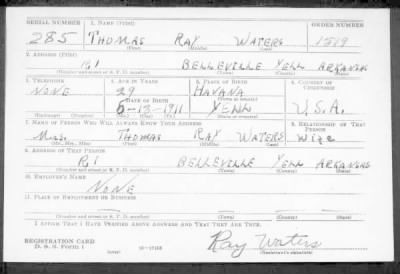 SERIAL NUMBER 1. NAME (Print) ORDER NUMBER
285 THOMAS RAY WATERS 1519
(First) (Middle) (Last)
2. ADDRESS (Print)
R1 BELLEVILLE YELL ARKANSAS
(Number and street or R. F. D. number) (Town) (County) (State)
3. TELEPHONE 4. AGE IN YEARS 5. PLACE OF BIRTH 6. COUNTRY OF CITIZENSHIP
NONE 29 HAVANA
DATE OF BIRTH (Town or county)
6-12-1911 YELL U.S.A.
(Exchange) (Number) (Mo.) (Day) (Yr.) (State or country)
7. NAME OF PERSON WHO WILL ALWAYS KNOW YOUR ADDRESS 8. RELATIONSHIP OF THAT PERSON
Mrs. THOMAS RAY WATERS Wife
(Mr., Mrs., Miss) (First) (Middle) (Last)
9. ADDRESS OF THAT PERSON
R1 BELLEVILLE YELL ARKANSAS
(Number and street or R. F. D. number) (Town) (County) (State)
10. EMPLOYER'S NAME
NONE
11. PLACE OF EMPLOYMENT OR BUSINESS
(Number and street or R. F. D. number) (Town) (County) (State)
I AFFIRM THAT I HAVE VERIFIED ABOVE ANSWERS AND THAT THEY ARE TRUE.
REGISTRATION CARD
D. S. S. Form 1 Ray Waters
(Registrant's signature)